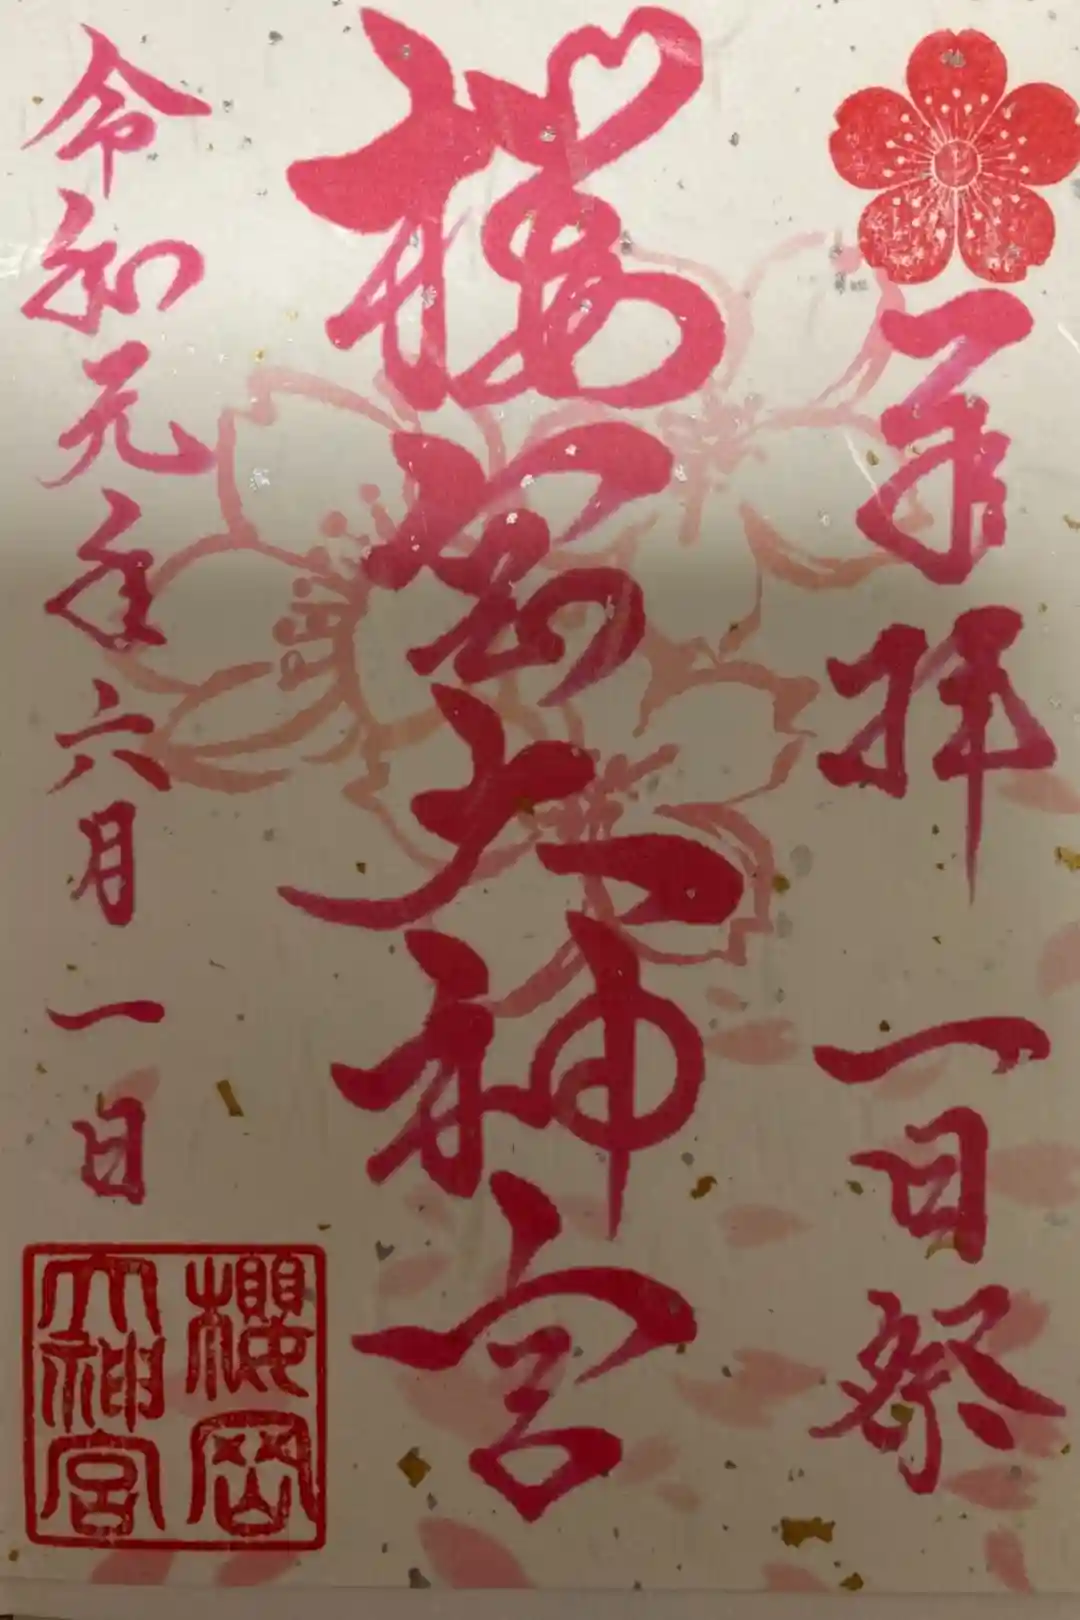 奉拝 一日祭
櫻岡大神宮
令和元年六月一日
櫻岡
大神宮